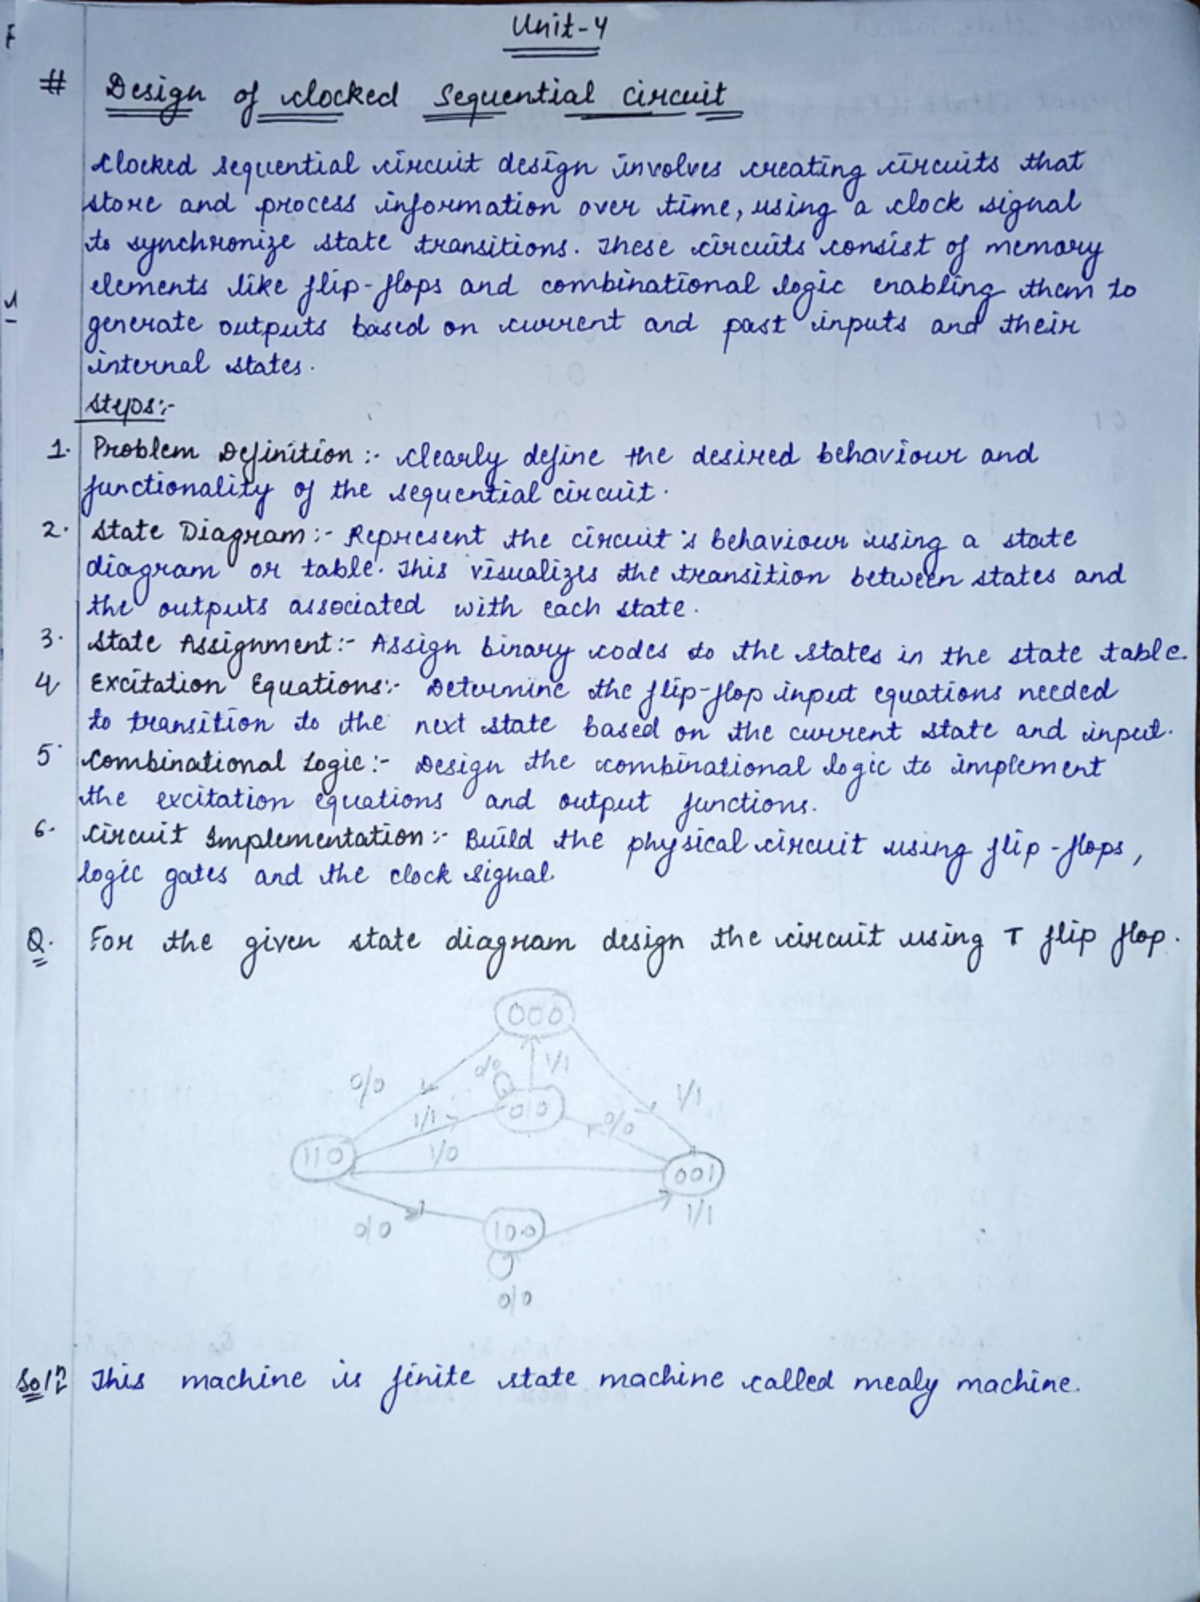 Unit-4
# Design of clocked sequential circuit
clocked sequential circuit design involves creating circuits that
store and process information over time, using a clock signal
to synchronize state transitions. These circuits consist of memory
elements like flip-flops and combinational logic enabling them to
generate outputs based on current and past inputs and their
internal states.
Steps:-
1. Problem Definition :- clearly define the desired behaviour and
functionality of the sequential circuit.
2. State Diagram :- Represent the circuit's behaviour using a state
diagram or table. This visualizes the transition between states and
the outputs associated with each state.
3. State Assignment:- Assign binary codes to the states in the state table.
4 Excitation Equations:- Determine the flip-flop input equations needed
to transition to the next state based on the current state and input.
5. Combinational Logic:- Design the combinational logic to implement
the excitation equations and output functions.
6. Circuit Implementation :- Build the physical circuit using flip-flops,
logic gates and the clock signal.
Q. For the given state diagram design the circuit using T flip flop.
000
0/0 0/0 1/1
1/1 010 0/0 1/1
110 1/0 001
0/0 100 1/1
0/0
Soln This machine is finite state machine called mealy machine.